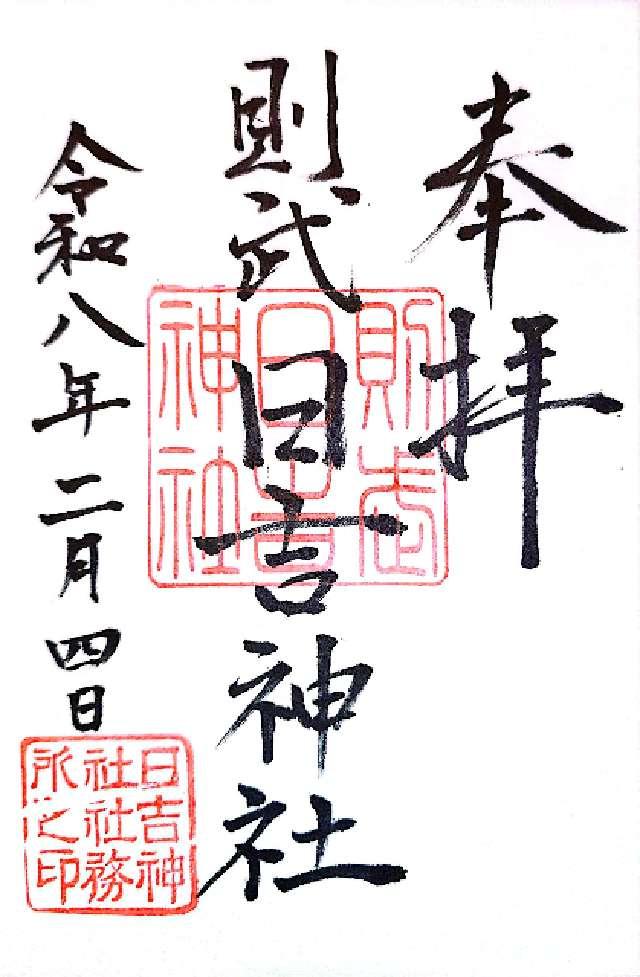 奉拝
則武日吉神社
則武
日吉
神社
令和八年二月四日
日吉神
社社務
所之印